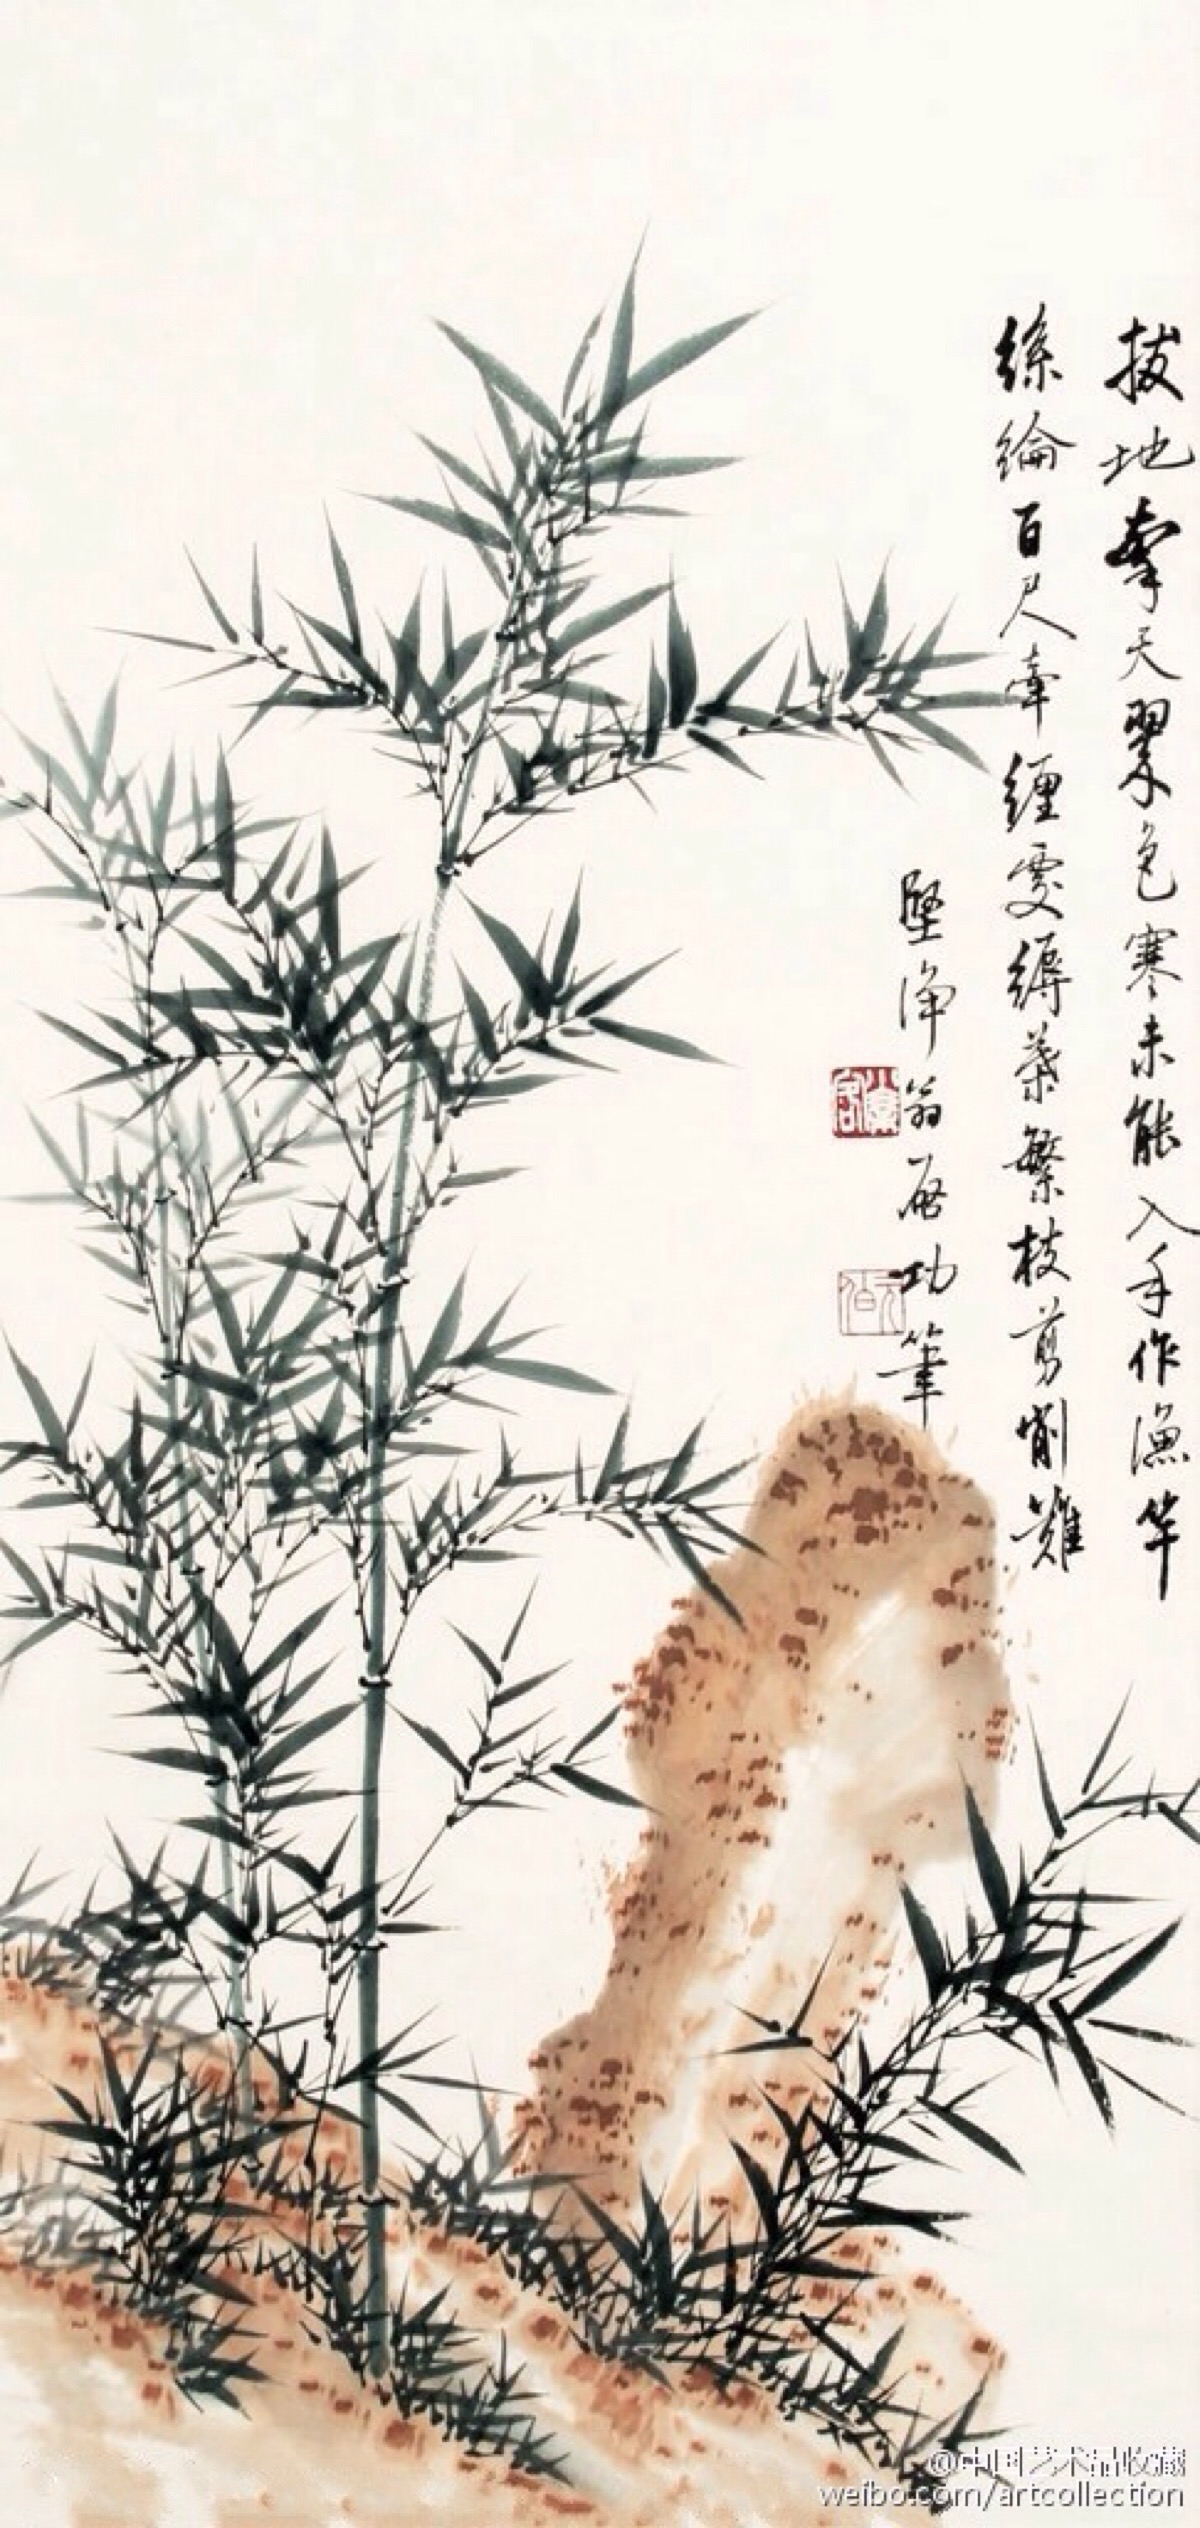 拔地牽天翠色寒未能入手作漁竿
絲綸百尺牽纏處縟葉繁枝剪削難
堅淨翁啟功筆
元白
@中国艺术品收藏
weibo.com/artcollection